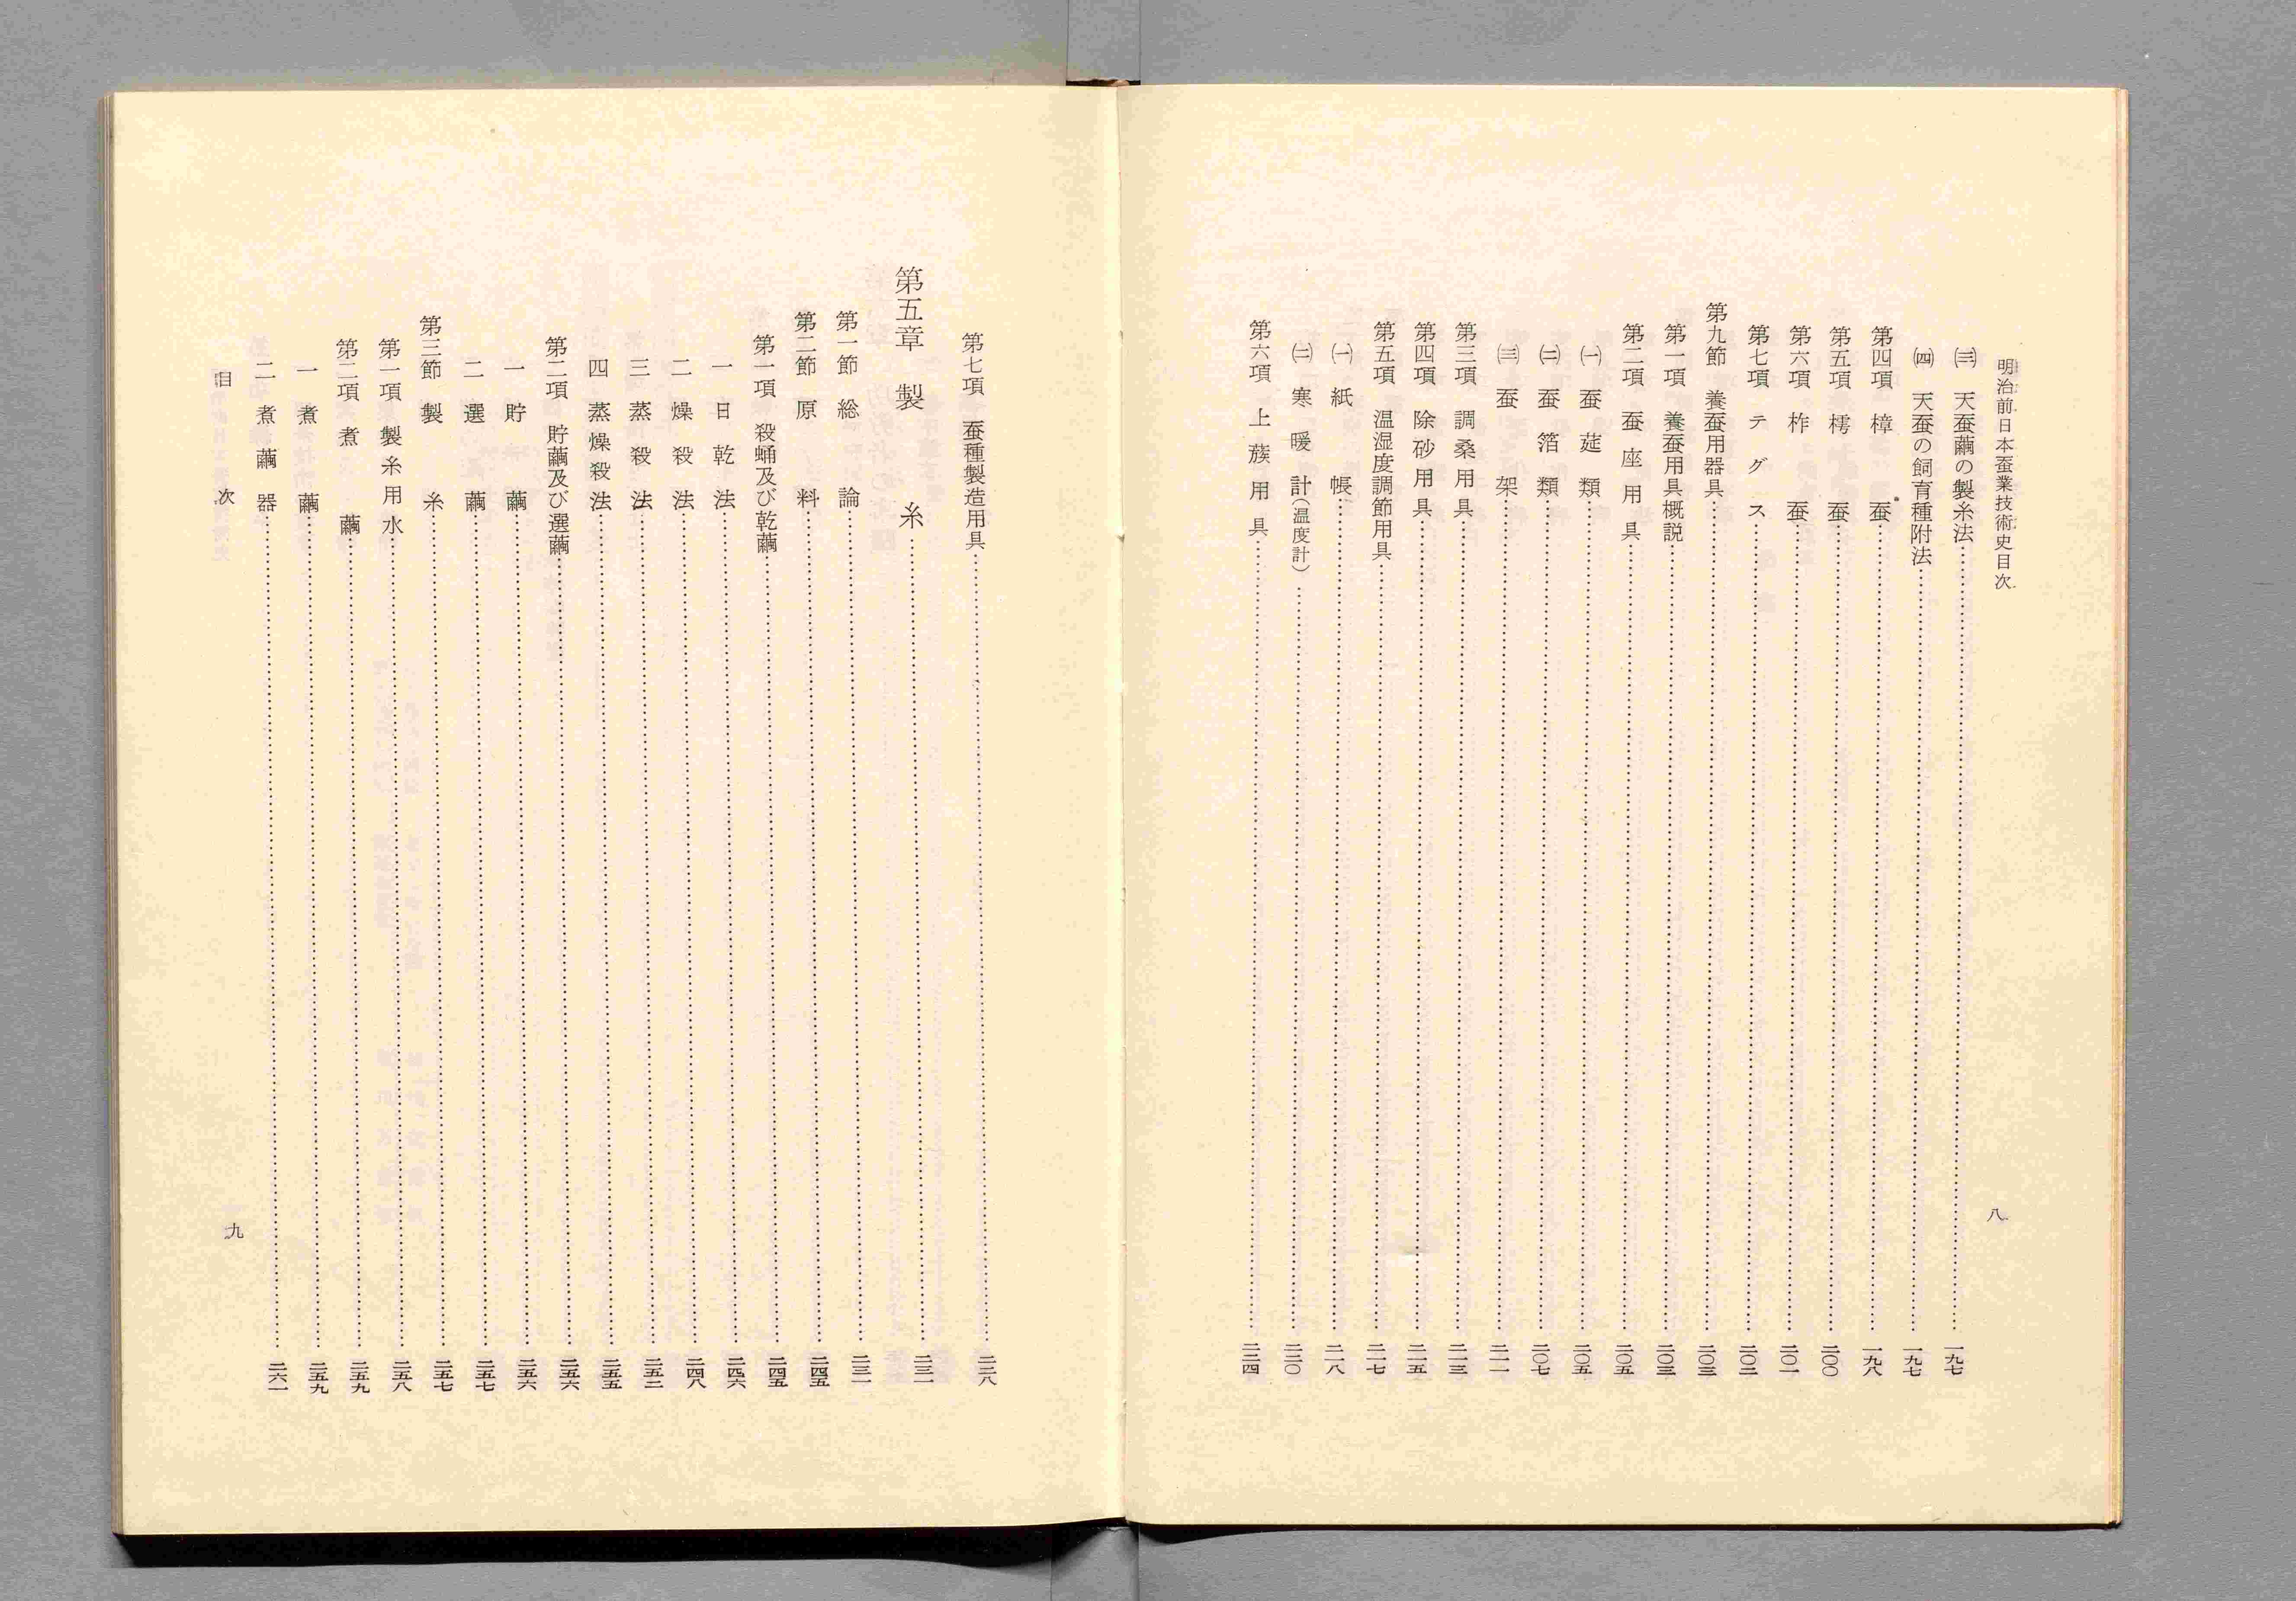 明治前日本蚕業技術史目次
八
㈢ 天蚕繭の製糸法……一九七
㈣ 天蚕の飼育種附法……一九七
第四項 樟蚕……一九八
第五項 樗蚕……二〇〇
第六項 柞蚕……二〇一
第七項 テグス……二〇二
第九節 養蚕用器具……二〇三
第一項 養蚕用具概説……二〇三
第二項 蚕座用具……二〇五
㈠ 蚕莚類……二〇五
㈡ 蚕箔類……二〇七
㈢ 蚕架……二一一
第三項 調桑用具……二一三
第四項 除砂用具……二一五
第五項 温湿度調節用具……二一七
㈠ 紙帳……二一八
㈡ 寒暖計(温度計)……二二〇
第六項 上蔟用具……二二四
第七項 蚕種製造用具……二二八
第五章 製糸……二三一
第一節 総論……二三一
第二節 原料……二四五
第一項 殺蛹及び乾繭……二四五
一 日乾法……二四六
二 燥殺法……二四八
三 蒸殺法……二五三
四 蒸燥殺法……二五五
第二項 貯繭及び選繭……二五六
一 貯繭……二五六
二 選繭……二五七
第三節 製糸……二五七
第一項 製糸用水……二五八
第二項 煮繭……二五九
一 煮繭……二五九
二 煮繭器……二六一
目次
九